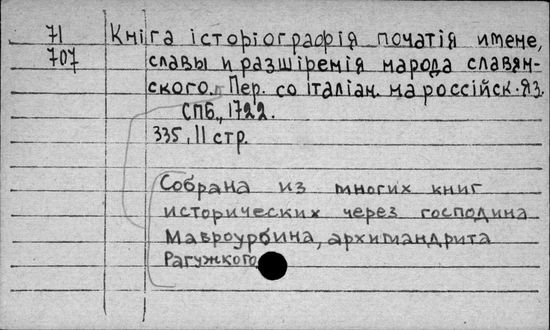 71 Кніга історіографія початія имене,
707 славы и разшіренія народа славян-
ского. Пер. со італіан. на россійск. яз.
СПБ., 1722.
335, 11 стр.
Собрана из многих книг
исторических через господина
Мавроурбина, архимандрита
Рагужкого